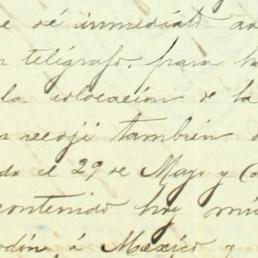 e dé inmediato av
telégrafo, para ha
la colocación de la
recojí también
do el 29 de Mayo y Co
contenido hoy mis
á México y